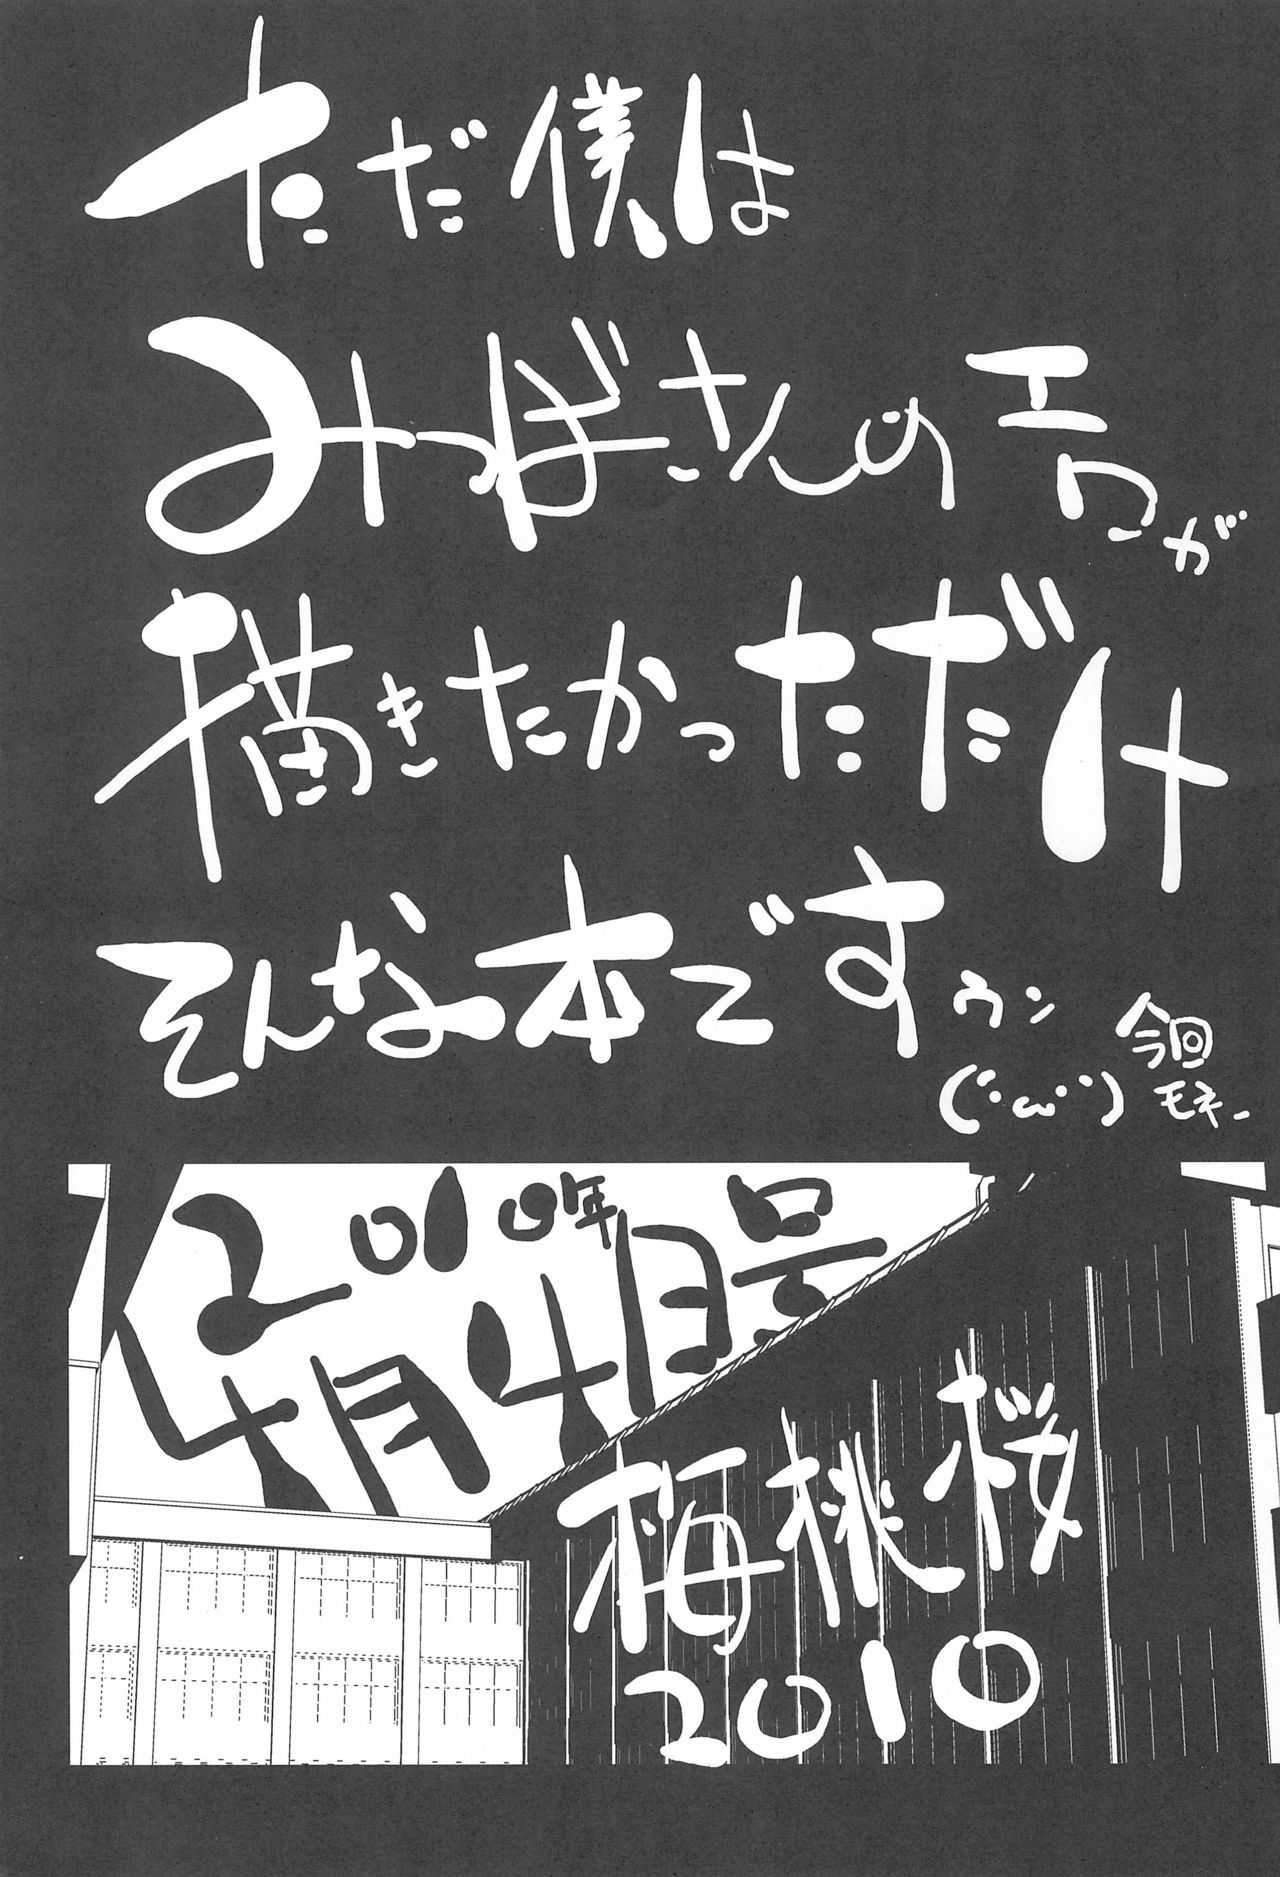 ただ僕は
みつばさんのエロが
描きたかっただけ
そんな本です ウン
(´・ω・`)
今回
モネ-
2010年
4月号
梅桃桜
2010